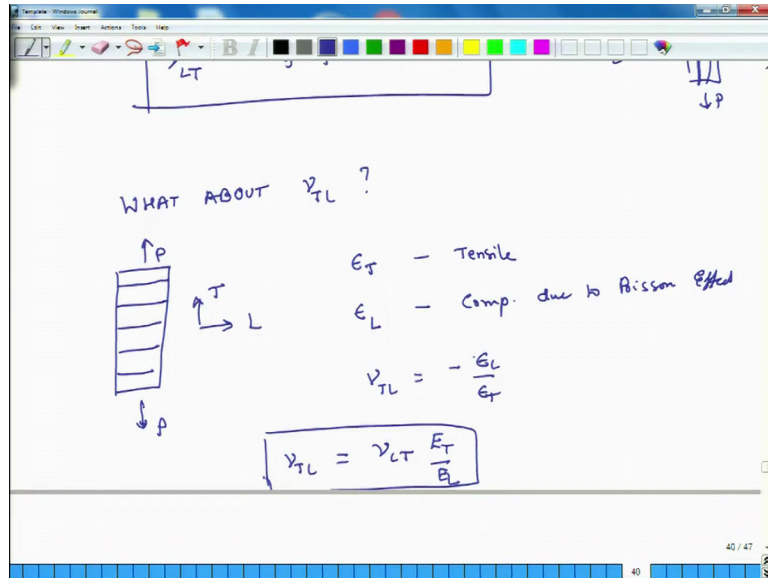 Template - Windows Journal
File Edit View Insert Actions Tools Help
B I
LT
↓P
WHAT ABOUT ν_TL ?
↑P
ε_T – Tensile
T
L
ε_L – Comp. due to Poisson Effect
ν_TL = - ε_L / ε_T
P
ν_TL = ν_LT E_T / E_L
40 / 47
40